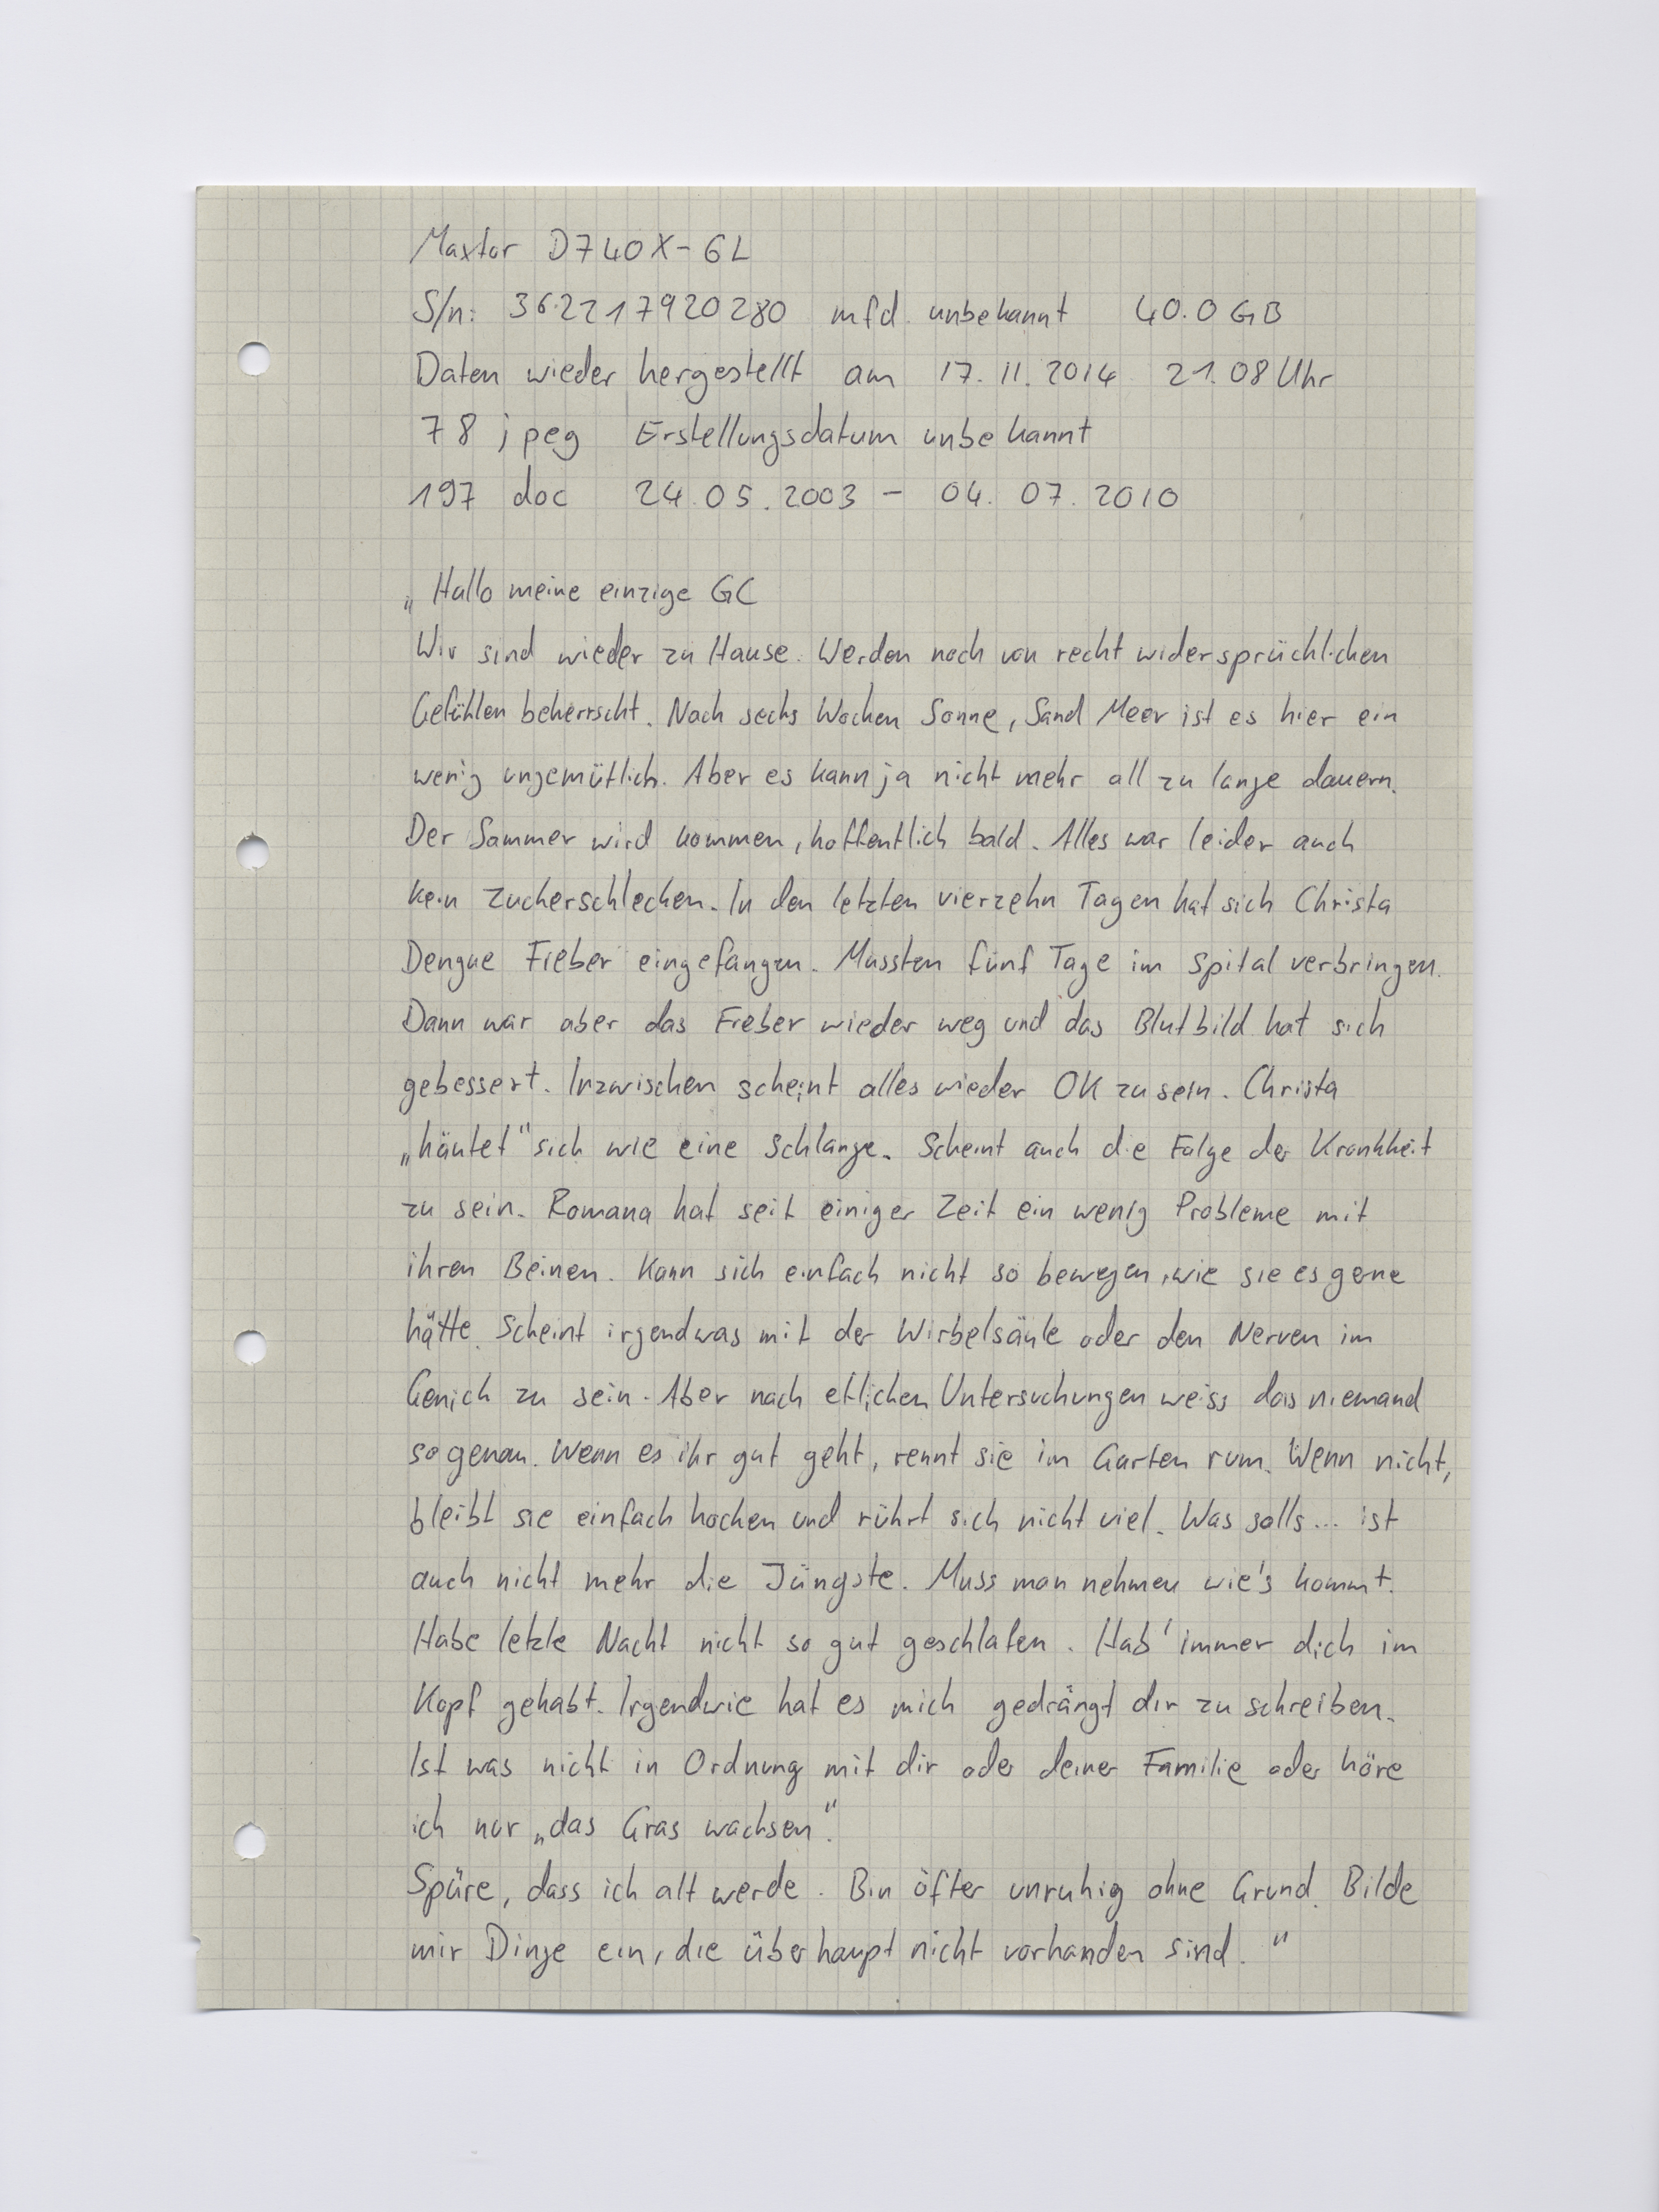 Maxtor D740X-6L
S/n: 362217920280 mfd unbekannt 40.0 GB
Daten wieder hergestellt am 17.11.2014 21.08 Uhr
78 jpeg Erstellungsdatum unbekannt
197 doc 24.05.2003 - 04.07.2010
„Hallo meine einzige GC
Wir sind wieder zu Hause. Werden noch von recht widersprüchlichen
Gefühlen beherrscht. Nach sechs Wochen Sonne, Sand Meer ist es hier ein
wenig ungemütlich. Aber es kann ja nicht mehr all zu lange dauern.
Der Sommer wird kommen, hoffentlich bald. Alles war leider auch
kein Zuckerschlecken. In den letzten vierzehn Tagen hat sich Christa
Dengue Fieber eingefangen. Mussten fünf Tage im Spital verbringen.
Dann war aber das Fieber wieder weg und das Blutbild hat sich
gebessert. Inzwischen scheint alles wieder OK zu sein. Christa
„häutet" sich wie eine Schlange. Scheint auch die Folge der Krankheit
zu sein. Romana hat seit einiger Zeit ein wenig Probleme mit
ihren Beinen. Kann sich einfach nicht so bewegen, wie sie es gerne
hätte. Scheint irgendwas mit der Wirbelsäule oder den Nerven im
Genick zu sein. Aber nach etlichen Untersuchungen weiss das niemand
so genau. Wenn es ihr gut geht, rennt sie im Garten rum. Wenn nicht,
bleibt sie einfach hocken und rührt sich nicht viel. Was solls... ist
auch nicht mehr die Jüngste. Muss man nehmen wie's kommt.
Habe letzte Nacht nicht so gut geschlafen. Hab' immer dich im
Kopf gehabt. Irgendwie hat es mich gedrängt dir zu schreiben.
Ist was nicht in Ordnung mit dir oder deiner Familie oder höre
ich nur „das Gras wachsen".
Spüre, dass ich alt werde. Bin öfter unruhig ohne Grund. Bilde
mir Dinge ein, die überhaupt nicht vorhanden sind."